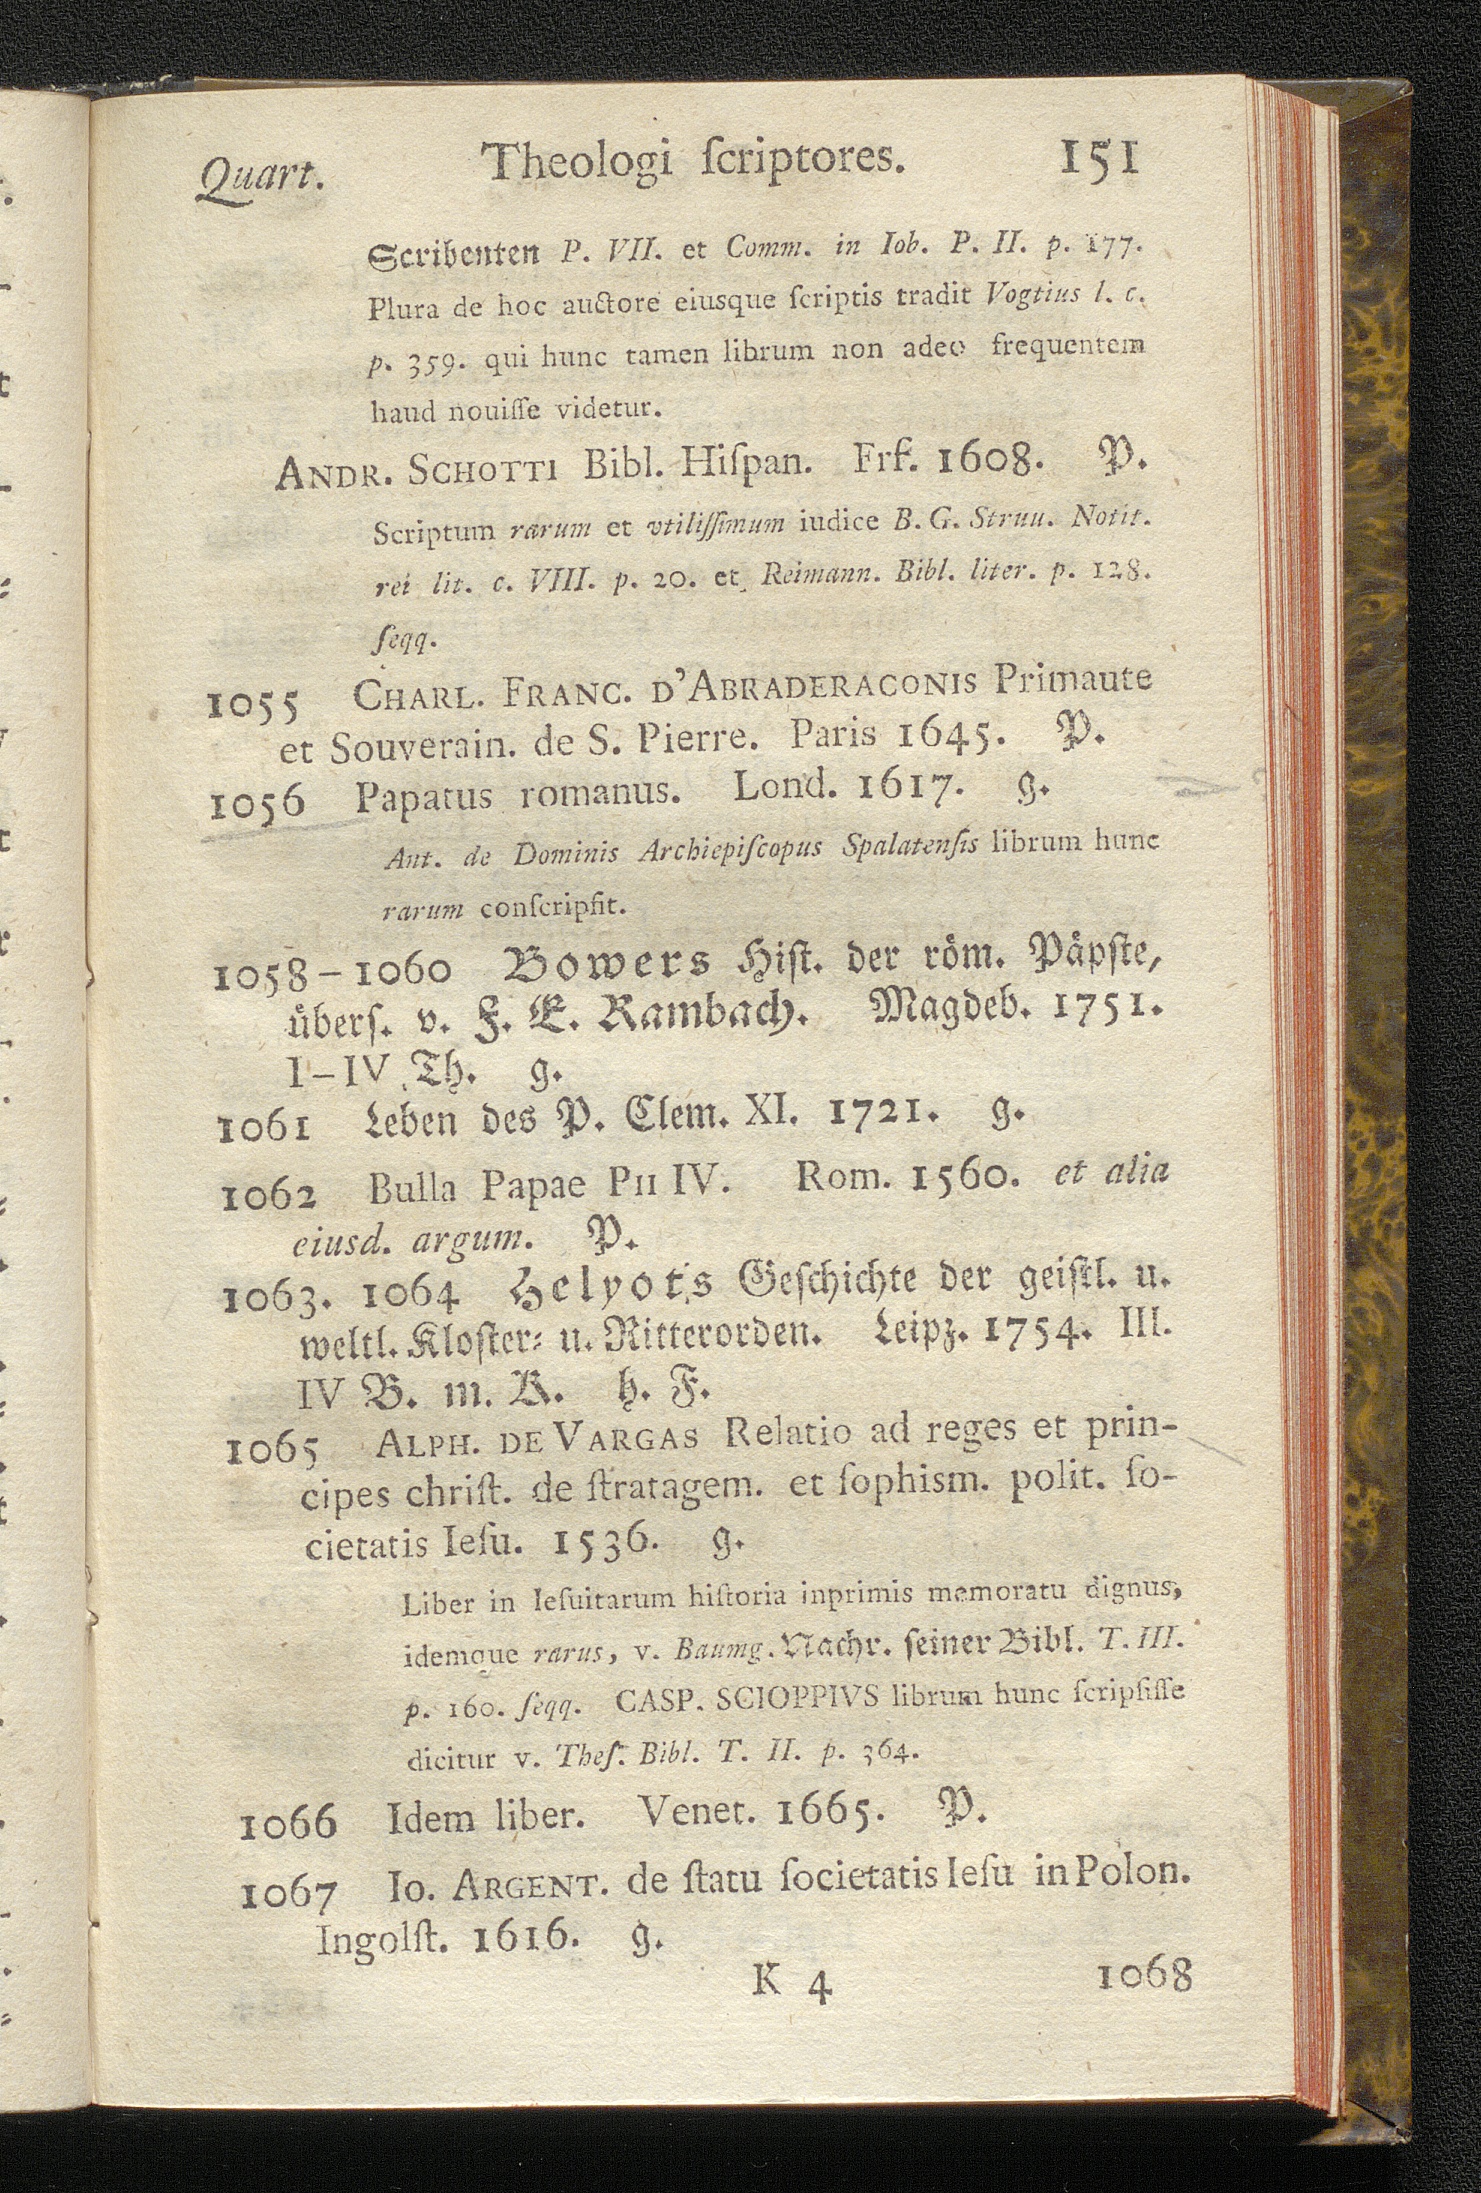 Quart. Theologi ſcriptores. 151
Scribenten P. VII. et Comm. in Iob. P. II. p. 177.
Plura de hoc auctore eiusque ſcriptis tradit Vogtius l. c.
p. 359. qui hunc tamen librum non adeo frequentem
haud nouiſſe videtur.
ANDR. SCHOTTI Bibl. Hiſpan. Frf. 1608. P.
Scriptum rarum et vtiliſſimum iudice B. G. Struu. Notit.
rei lit. c. VIII. p. 20. et Reimann. Bibl. liter. p. 128.
ſeqq.
1055 CHARL. FRANC. D'ABRADERACONIS Primaute
et Souverain. de S. Pierre. Paris 1645. P.
1056 Papatus romanus. Lond. 1617. g.
Ant. de Dominis Archiepiſcopus Spalatenſis librum hunc
rarum conſcripſit.
1058–1060 Bowers Hiſt. der röm. Päpſte,
überſ. v. F. E. Rambach. Magdeb. 1751.
I–IV Th. g.
1061 Leben des P. Clem. XI. 1721. g.
1062 Bulla Papae PII IV. Rom. 1560. et alia
eiusd. argum. P.
1063. 1064 Helyots Geſchichte der geiſtl. u.
weltl. Kloſter= u. Ritterorden. Leipz. 1754. III.
IV B. m. K. h. F.
1065 ALPH. DE VARGAS Relatio ad reges et prin-
cipes chriſt. de ſtratagem. et ſophism. polit. ſo-
cietatis Ieſu. 1536. g.
Liber in Ieſuitarum hiſtoria inprimis memoratu dignus,
idemque rarus, v. Baumg. Nachr. ſeiner Bibl. T. III.
p. 160. ſeqq. CASP. SCIOPPIVS librum hunc ſcripſiſſe
dicitur v. Theſ. Bibl. T. II. p. 364.
1066 Idem liber. Venet. 1665. P.
1067 Io. ARGENT. de ſtatu ſocietatis Ieſu in Polon.
Ingolſt. 1616. g.
K 4 1068